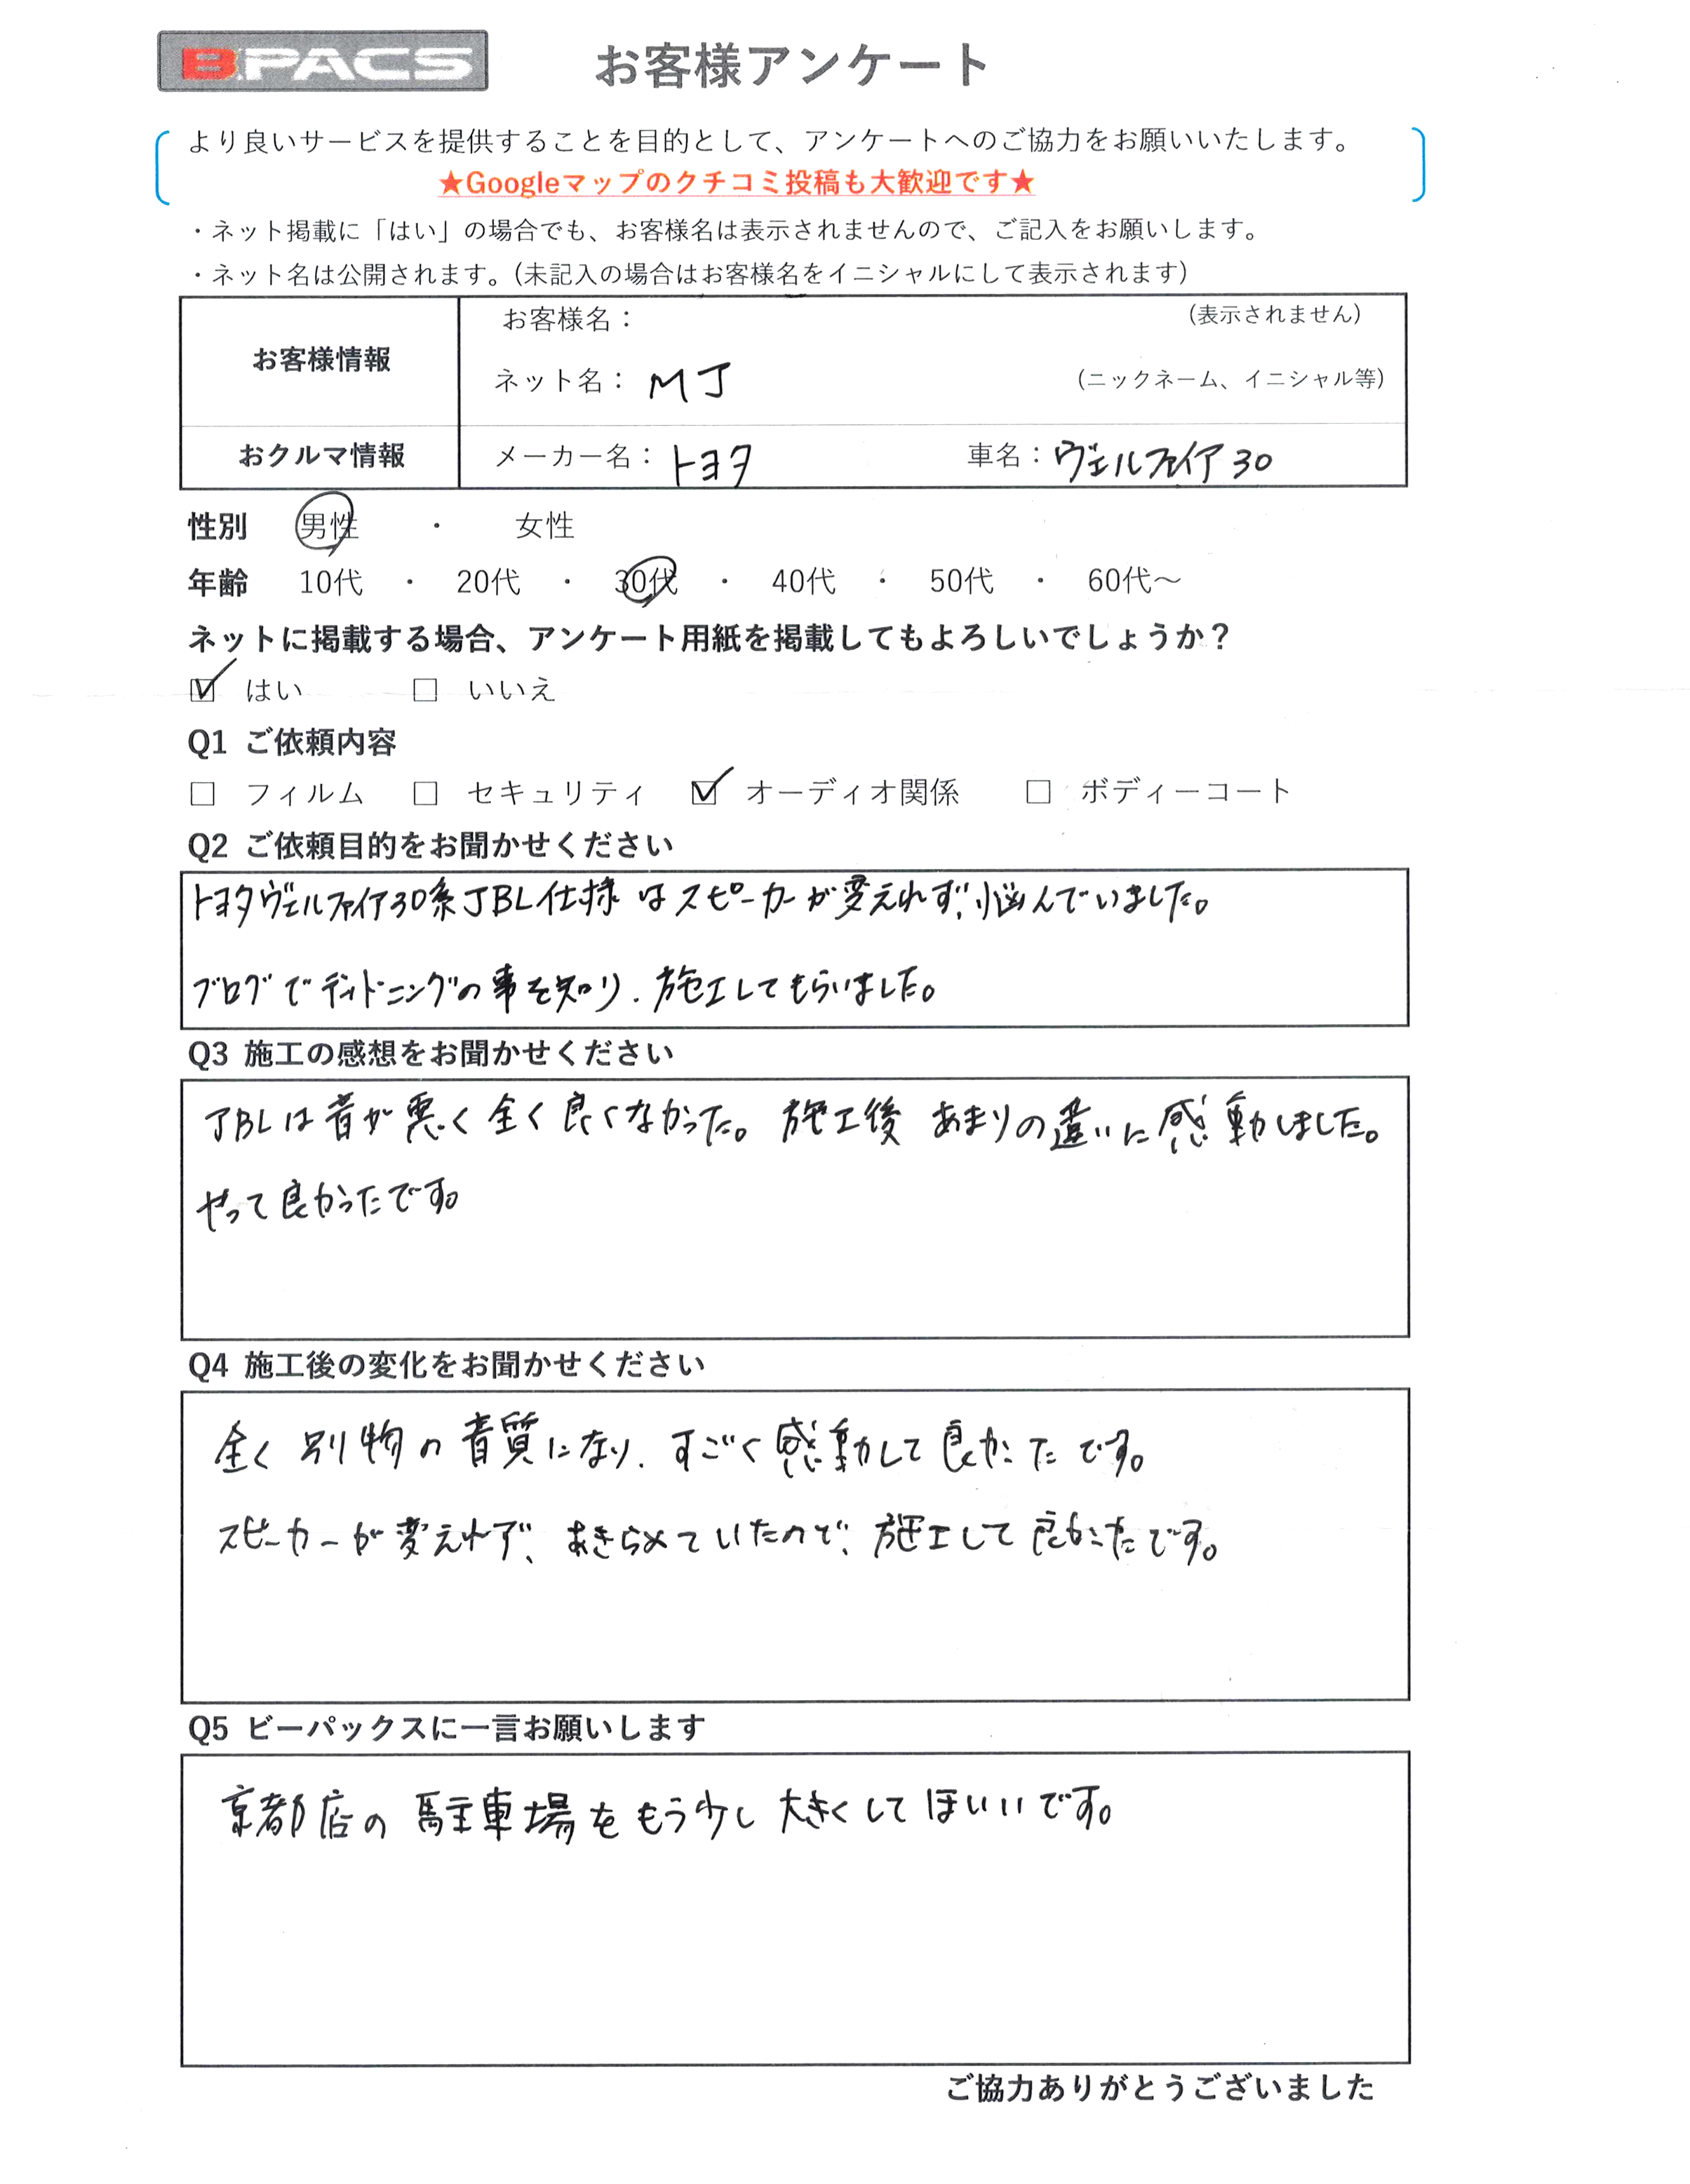 B.PACS お客様アンケート
より良いサービスを提供することを目的として、アンケートへのご協力をお願いいたします。
★Googleマップのクチコミ投稿も大歓迎です★
・ネット掲載に「はい」の場合でも、お客様名は表示されませんので、ご記入をお願いします。
・ネット名は公開されます。（未記入の場合はお客様名をイニシャルにして表示されます）
お客様情報
お客様名： （表示されません）
ネット名： MJ （ニックネーム、イニシャル等）
おクルマ情報 メーカー名： トヨタ 車名： ヴェルファイア30
性別 男性 ・ 女性
年齢 10代 ・ 20代 ・ 30代 ・ 40代 ・ 50代 ・ 60代～
ネットに掲載する場合、アンケート用紙を掲載してもよろしいでしょうか？
☑ はい □ いいえ
Q1 ご依頼内容
□ フィルム □ セキュリティ ☑ オーディオ関係 □ ボディーコート
Q2 ご依頼目的をお聞かせください
トヨタヴェルファイア30系JBL仕様はスピーカーが変えれず、悩んでいました。
ブログでデッドニングの事を知り、施工してもらいました。
Q3 施工の感想をお聞かせください
JBLは音が悪く全く良くなかった。施工後 あまりの違いに感動しました。
やって良かったです。
Q4 施工後の変化をお聞かせください
全く別物の音質になり、すごく感動して良かったです。
スピーカーが変えれず、あきらめていたので、施工して良かったです。
Q5 ビーパックスに一言お願いします
京都店の駐車場をもう少し大きくしてほしいです。
ご協力ありがとうございました